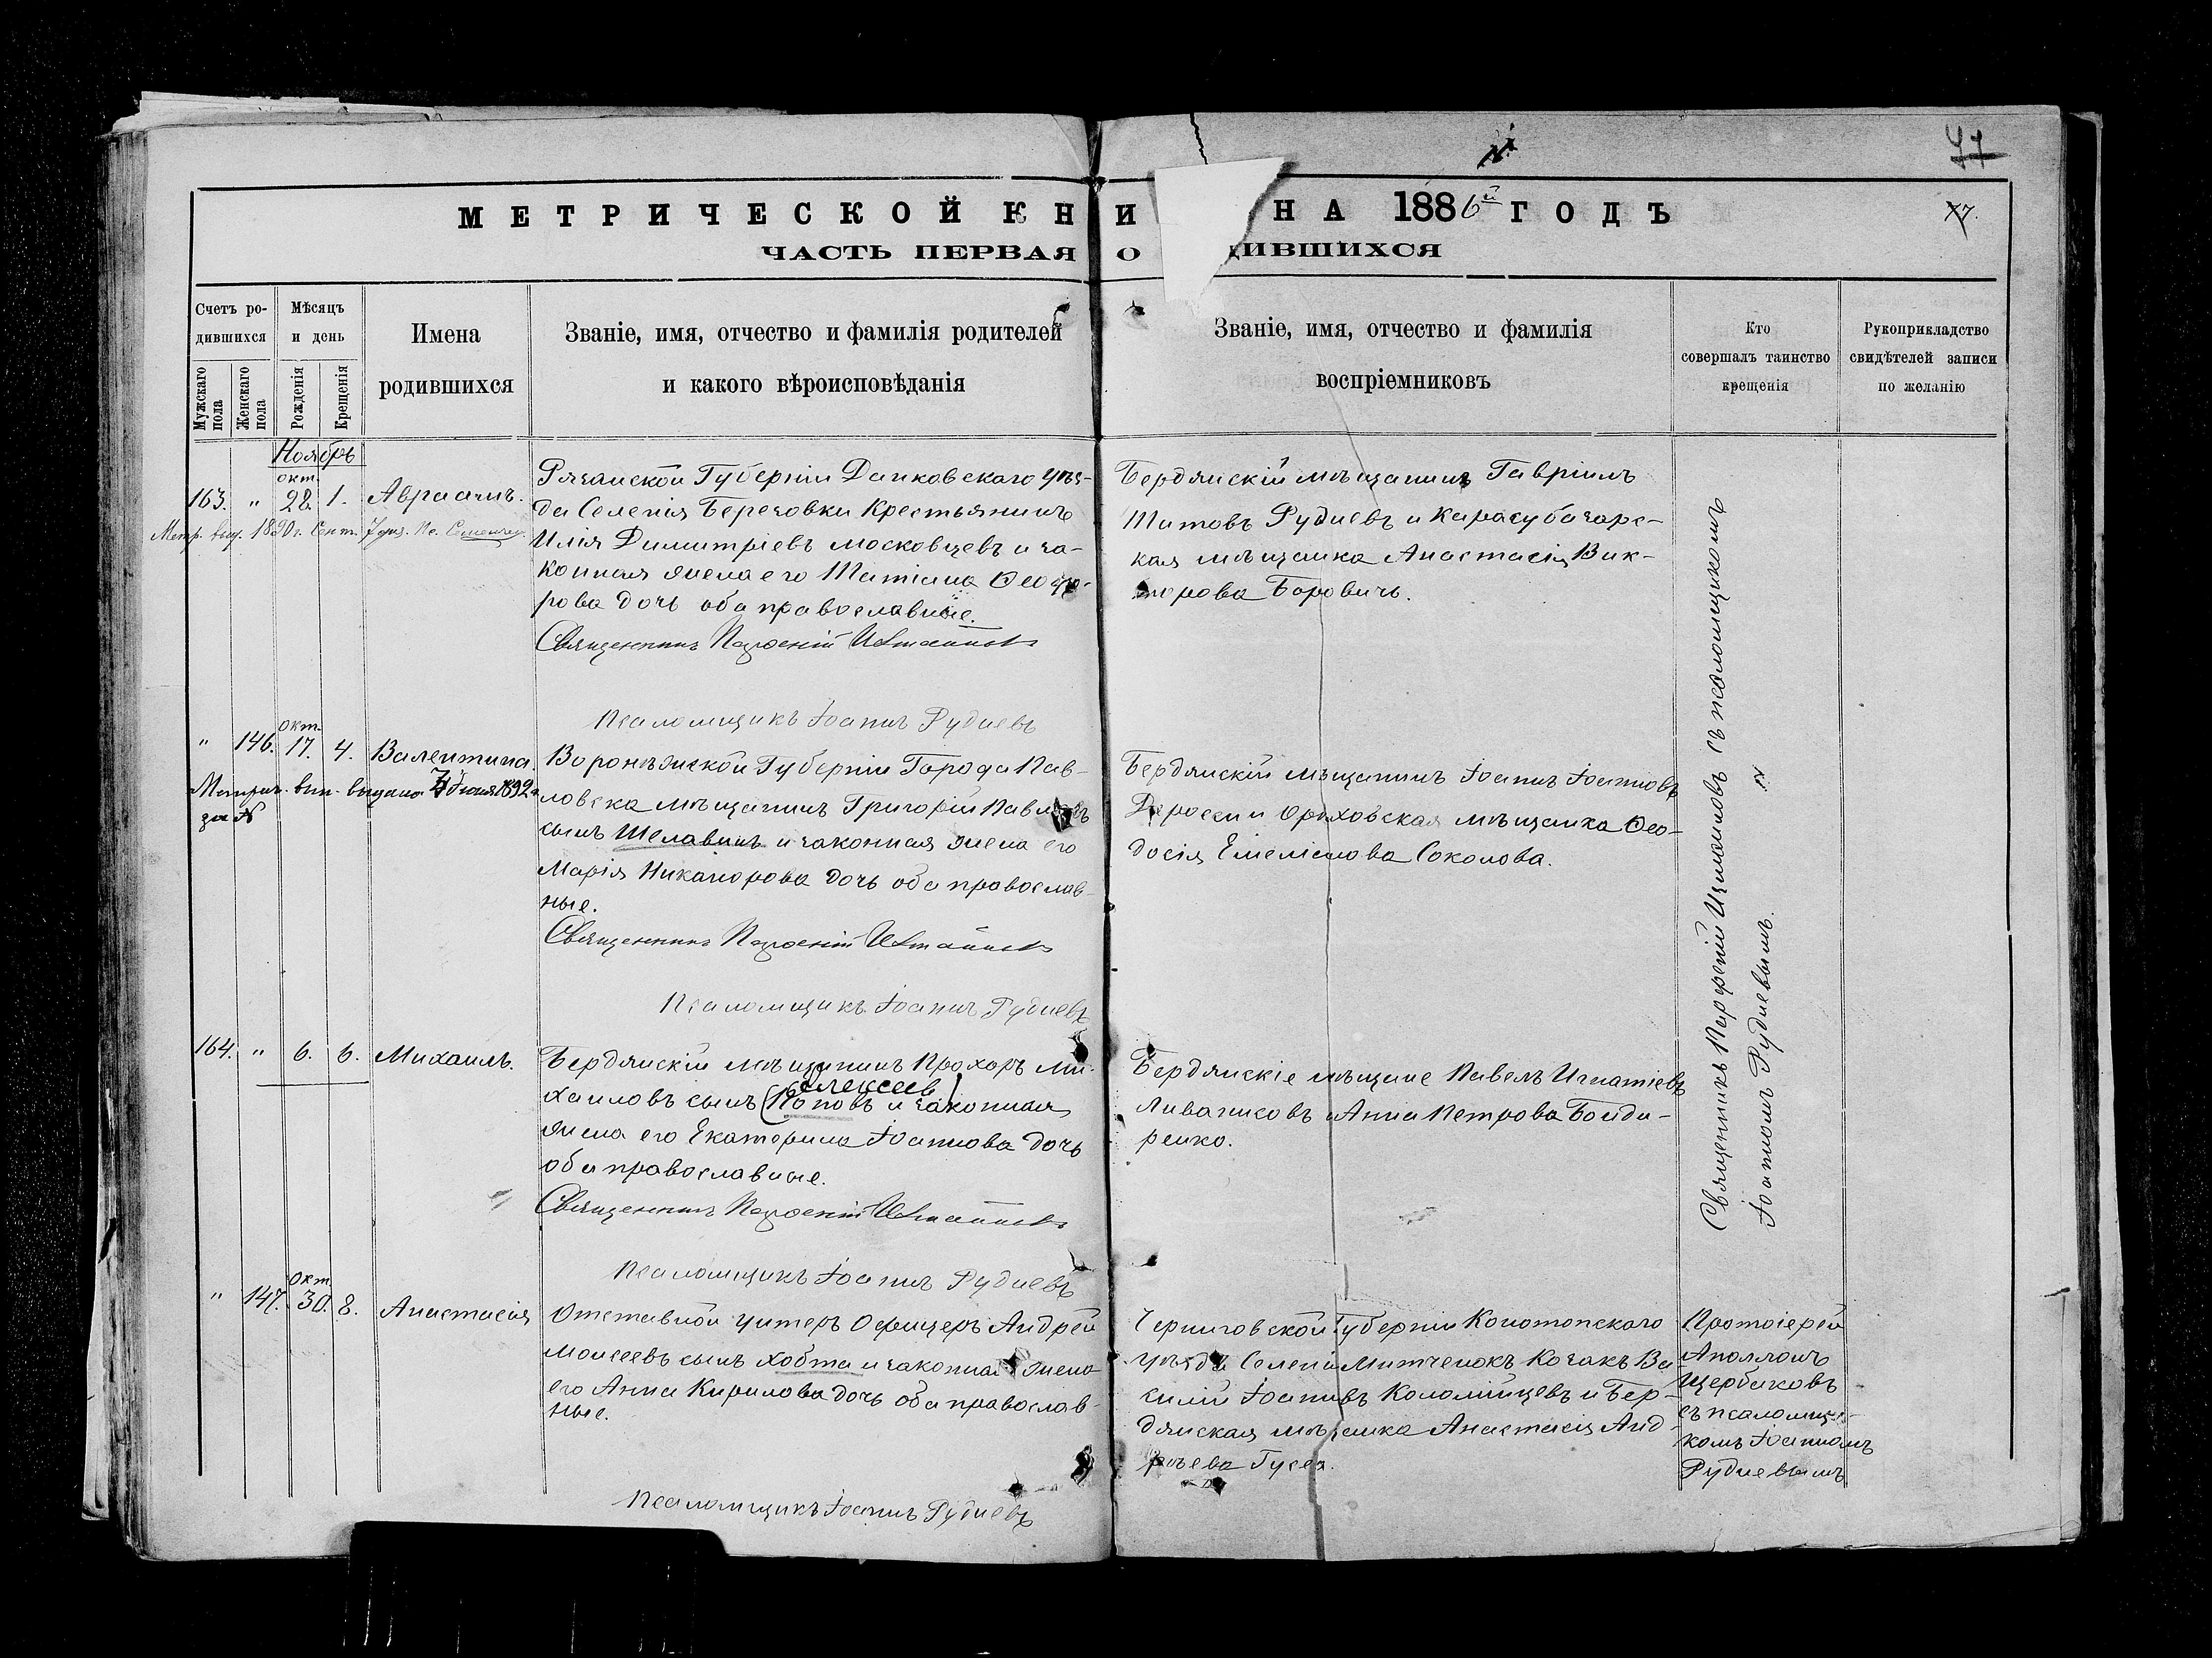 77
МЕТРИЧЕСКОЙ КНИ НА 1886й ГОДЪ
77.
ЧАСТЬ ПЕРВАЯ О ДИВШИХСЯ
Счетъ ро-
дившихся
Мѣсяцъ
и день
Мужскаго пола
Женскаго пола
Рожденія
Крещенія
Имена
родившихся
Званіе, имя, отчество и фамилія родителей
и какого вѣроисповѣданія
Званіе, имя, отчество и фамилія
воспріемниковъ
Кто
совершалъ таинство
крещенія
Рукоприкладство
свидѣтелей записи
по желанію
Ноябрь
окт.
163. " 28. 1. Авраамъ.
Метр. выд. 1890 г. Сент. 7
Рязанской Губерніи Данковскаго уѣз-
да Селенія Березовки Крестьянинъ
Илія Димитріевъ Московцевъ и за-
конная жена его Татіана Ѳеодо-
рова дочь оба православные.
Священникъ Парѳеній
Псаломщикъ Іоаннъ Рудневъ
Бердянскій мѣщанинъ Гавріилъ
Титовъ Рудневъ и Карасубазарс-
кая мѣщанка Анастасія Вик-
торова Боровичъ.
окт.
" 146. 17. 4. Валентина.
Метрич. вып. выдана 7 Іюня 1892
за №
Воронѣжской Губерніи Города Пав-
ловска мѣщанинъ Григорій Павловъ
сынъ Шелавинъ и законная жена его
Марія Никанорова дочь оба православ-
ные.
Священникъ Парѳеній
Псаломщикъ Іоаннъ Рудневъ
Бердянскій мѣщанинъ Іоаннъ Іоанновъ
и Орѣховская мѣщанка Ѳео-
досія Емеліанова Соколова.
164. " 6. 6. Михаилъ.
Бердянскій мѣщанинъ Прохоръ Ми-
Алексеев
хаиловъ сынъ (Поповъ) и законная
жена его Екатерина Іоаннова дочь
оба православные.
Священникъ Парѳеній
Псаломщикъ Іоаннъ Рудневъ
Бердянскіе мѣщане Павелъ Игнатіевъ
Ливанцовъ и Анна Петрова Бонда-
ренко.
Священникъ Парѳеній съ псаломщикомъ
Іоанномъ Рудневымъ.
окт.
" 147. 30. 8. Анастасія
Отставной унтеръ Офицеръ Андрей
Моисеевъ сынъ Хобта и законная жена
его Анна Кирилова дочь оба православ-
ные.
Псаломщикъ Іоаннъ Рудневъ
Черниговской Губерніи Конотопскаго
уѣзда Селенія Митченокъ Козакъ Ва-
силій Іоановъ Коломійцевъ и Бер-
дянская мѣщанка Анастасія Анд-
реева Гусея.
Протоіерей
Аполлонъ
Щербаковъ
съ псаломщи-
комъ Іоанномъ
Рудневымъ